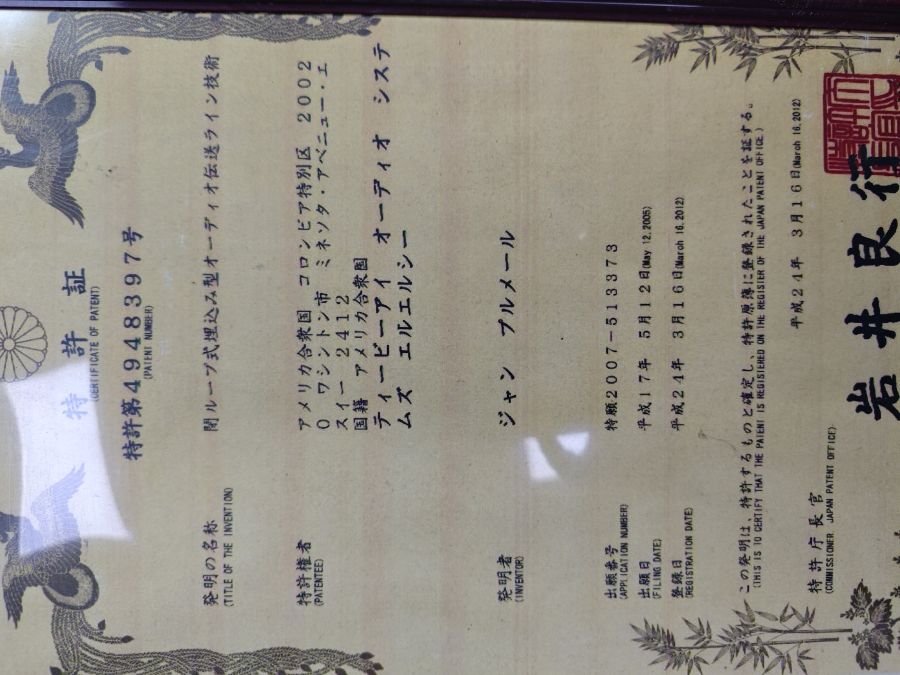 特許証
(CERTIFICATE OF PATENT)
特許第4948397号
(PATENT NUMBER)
発明の名称 閉ループ式埋込み型オーディオ伝送ライン技術
(TITLE OF THE INVENTION)
特許権者 アメリカ合衆国 コロンビア特別区 2002
(PATENTEE) 0 ワシントン市 ミネソタ・アベニュー・エ
スイー 2412
国籍 アメリカ合衆国
ティービーアイ オーディオ システ
ムズ エルエルシー
発明者 ジャン プルメール
(INVENTOR)
出願番号 特願2007-513373
(APPLICATION NUMBER)
出願日 平成17年 5月12日(May 12,2005)
(FILING DATE)
登録日 平成24年 3月16日(March 16,2012)
(REGISTRATION DATE)
この発明は、特許するものと確定し、特許原簿に登録されたことを証する。
(THIS IS TO CERTIFY THAT THE PATENT IS REGISTERED ON THE REGISTER OF THE JAPAN PATENT OFFICE.)
平成24年 3月16日(March 16,2012)
特許庁長官
(COMMISSIONER, JAPAN PATENT OFFICE)
岩井良行